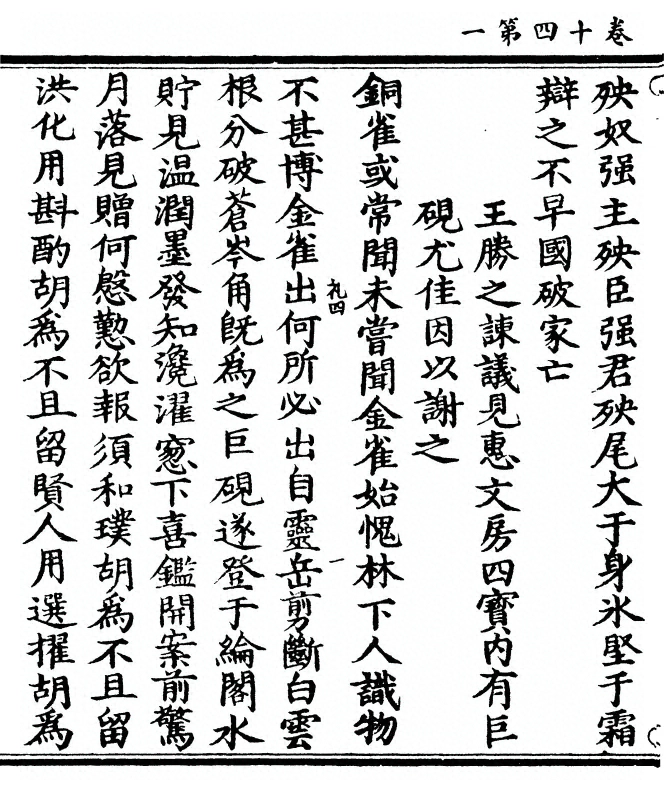 卷十四第一
殃奴强主殃臣强君殃尾大于身氷堅于霜
辯之不早國破家亡
王勝之諫議見惠文房四寳内有巨
硯尤佳因以謝之
銅雀或常聞未嘗聞金雀始愧林下人識物
礼四
一
不甚博金雀出何所必出自靈岳剪斷白雲
根分破蒼岑角旣爲之巨硯遂登于綸閣水
貯見温潤墨發知澆濯窻下喜鑑開案前驚
月落見贈何慇懃欲報須和璞胡爲不且留
洪化用斟酌胡爲不且留賢人用選擢胡爲